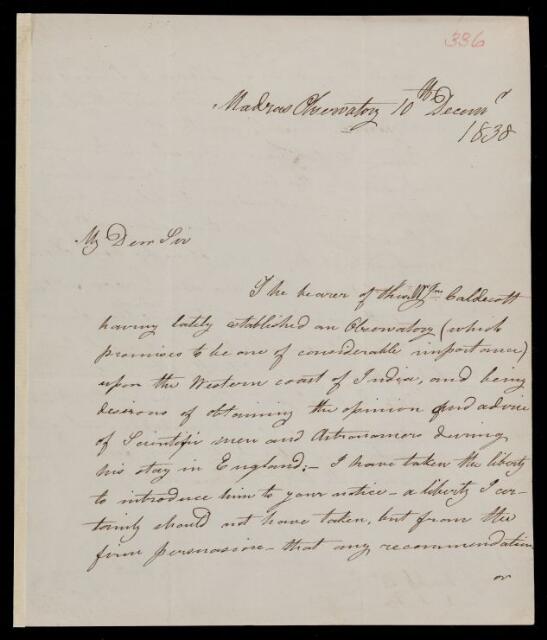 336
Madras Observatory 10th Decemr
1838
My Dear Sir
The bearer of this Mr Caldecott
having lately established an Observatory (which
promises to be one of considerable importance)
upon the Western coast of India, and being
desirous of obtaining the opinion and advice
of Scientific men and Astronomers during
his stay in England;- I have taken the liberty
to introduce him to your notice - a liberty I cer-
tainly should not have taken, but from the
firm persuasion - that any recommendation
or